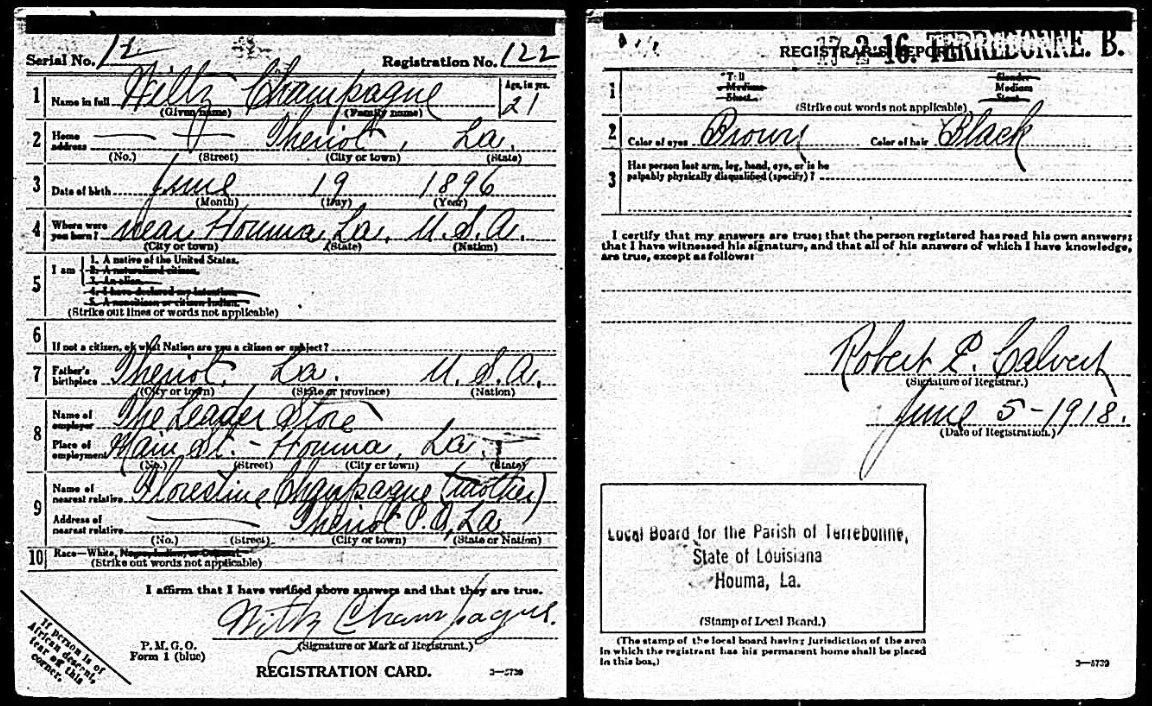 Serial No. 12 Registration No. 122
1 Name in full Wiltz Champagne Age, in yrs. 21
(Given name) (Family name)
2 Home address Theriot, La.
(No.) (Street) (City or town) (State)
3 Date of birth June 19 1896
(Month) (Day) (Year)
4 Where were you born? near Houma, La. U.S.A.
(City or town) (State) (Nation)
5 I am
1. A native of the United States.
2. A naturalized citizen.
3. An alien.
4. I have declared my intention.
5. A noncitizen or citizen Indian.
(Strike out lines or words not applicable)
6 If not a citizen, of what Nation are you a citizen or subject?
7 Father's birthplace Theriot, La. U.S.A.
(City or town) (State or province) (Nation)
8 Name of employer The Leader Store
Place of employment Main St. - Houma, La.
(No.) (Street) (City or town) (State)
9 Name of nearest relative Florestine Champagne (mother)
Address of nearest relative Theriot P.O, La
(No.) (Street) (City or town) (State or Nation)
10 Race—White, Negro, Indian, or Oriental.
(Strike out words not applicable)
I affirm that I have verified above answers and that they are true.
Wiltz Champagne.
(Signature or Mark of Registrant.)
P. M. G. O.
Form 1 (blue)
REGISTRATION CARD.
3—5739
If person is of
African descent,
tear off this
corner.
REGISTRAR'S REPORT
17 2 16. TERREBONNE. B.
1 Tall Slender
Medium Medium
Short Stout
(Strike out words not applicable)
2 Color of eyes Brown Color of hair Black
3 Has person lost arm, leg, hand, eye, or is he
palpably physically disqualified (specify)?
I certify that my answers are true; that the person registered has read his own answers;
that I have witnessed his signature, and that all of his answers of which I have knowledge,
are true, except as follows:
Robert P. Calvert
(Signature of Registrar.)
June 5-1918.
(Date of Registration.)
Local Board for the Parish of Terrebonne,
State of Louisiana
Houma, La.
(Stamp of Local Board.)
(The stamp of the local board having jurisdiction of the area
in which the registrant has his permanent home shall be placed
in this box.)
3—5739